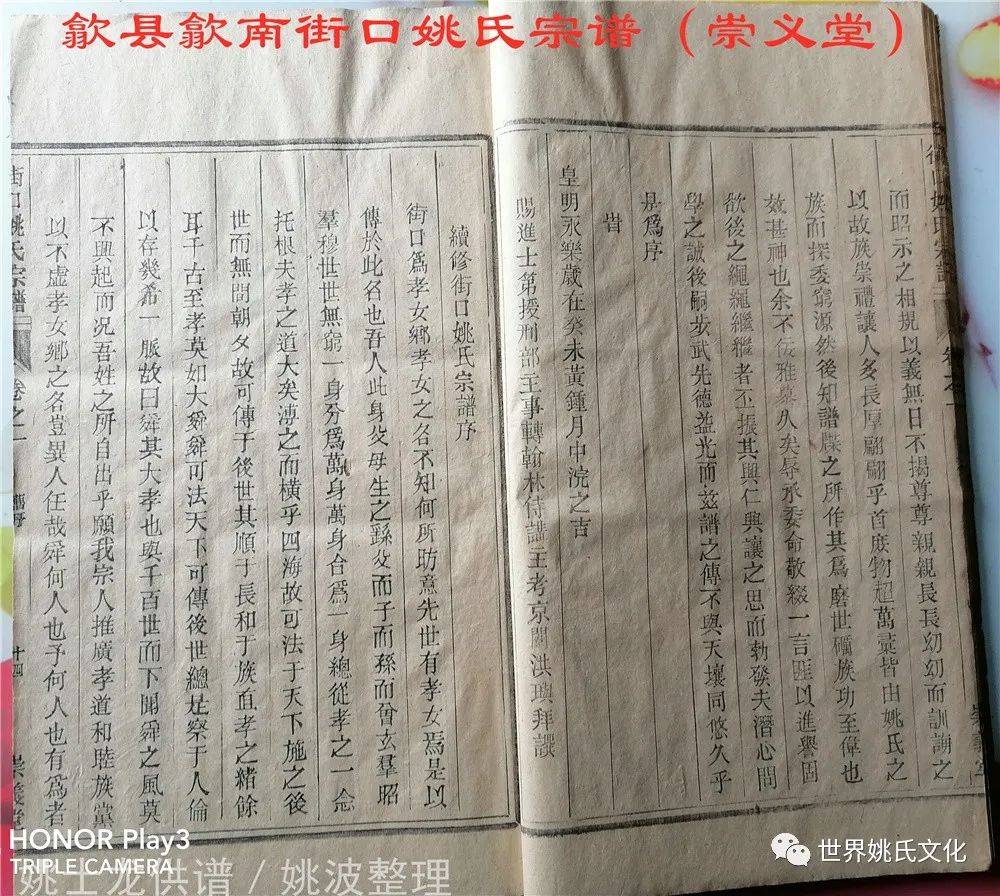 歙县歙南街口姚氏宗谱（崇义堂）
而昭示之相規以義無日不揭尊尊親親長長幼幼而訓誦之
以故族崇禮讓人多長厚翩翩乎首庶物超萬彙皆由姚氏之
族而探委窮源然後知譜牒之所作其為磨世礪族功至偉也
效甚神也余不佞雅慕久矣辱承委命敬綴一言匪以進譽固
欲後之繩繩繼繼者丕振其興仁興讓之思而勃發夫潛心問
學之誠後嗣步武先德益光而茲譜之傳不與天壤同悠久乎
是為序
旹
皇明永樂歲在癸未黃鍾月中浣之吉
賜進士第授刑部主事轉翰林侍講主考京闈洪璵拜譔
續修街口姚氏宗譜序
街口為孝女鄉孝女之名不知何所昉意先世有孝女焉是以
傳於此名也吾人此身父母生之繇父而子而孫而曾玄羣昭
羣穆世世無窮一身分為萬身萬身合為一身總從孝之一念
托根夫孝之道大矣溥之而橫乎四海故可法于天下施之後
世而無間朝夕故可傳于後世其順于長和于族直孝之緒餘
耳千古至孝莫如大舜舜可法天下可傳後世總是察于人倫
以存幾希一脈故曰舜其大孝也與千百世而下聞舜之風莫
不興起而况吾姓之所自出乎願我宗人推廣孝道和睦族黨
以不虛孝女鄉之名豈異人任哉舜何人也予何人也有為者
街口姚氏宗譜
卷之一
舊序
十四
崇義堂
HONOR Play3
TRIPLE CAMERA
姚士龙供谱 / 姚波整理
世界姚氏文化